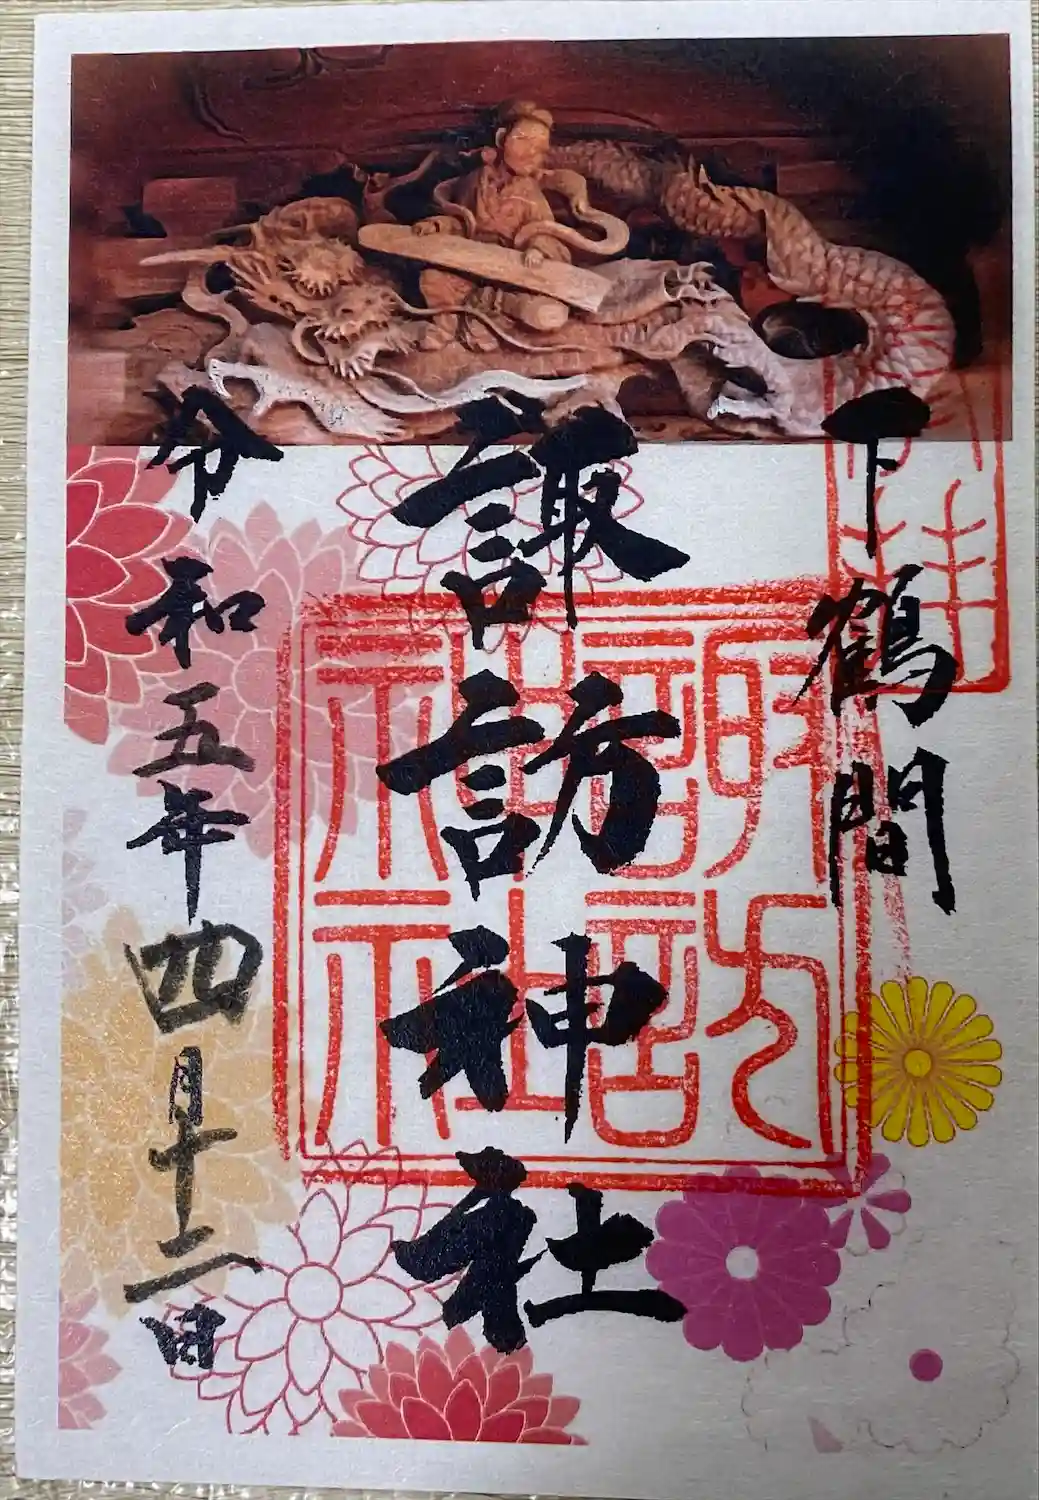 奉拝
下鶴間
諏訪神社
諏訪
神社
令和五年四月十二日